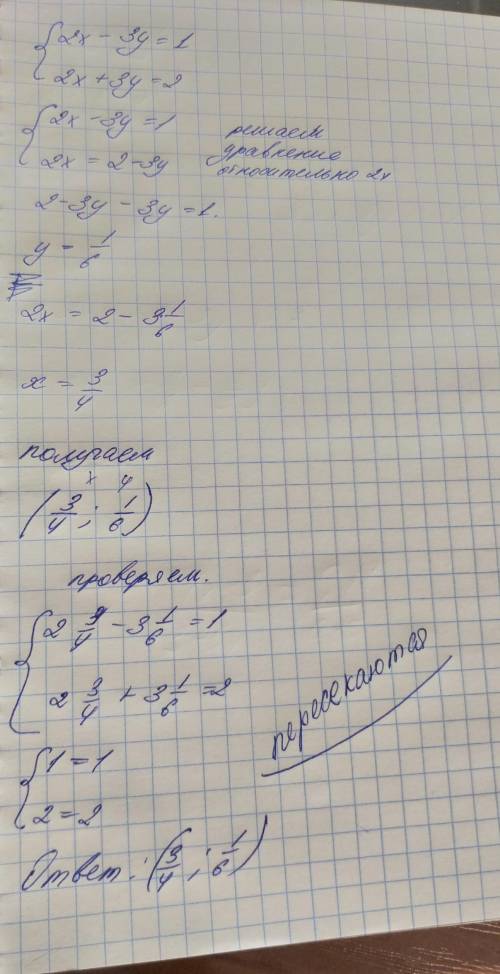 2x - 3y = 1
2x + 3y = 2
2x - 3y = 1
2x = 2 - 3y
решаем
уравнение
относительно 2x
2 - 3y - 3y = 1.
y = 1/6
2x = 2 - 3 1/6
x = 3/4
получаем
x y
(3/4 ; 1/6)
проверяем.
2 3/4 - 3 1/6 = 1
2 3/4 + 3 1/6 = 2
пересекаются
1 = 1
2 = 2
Ответ: (3/4 ; 1/6)